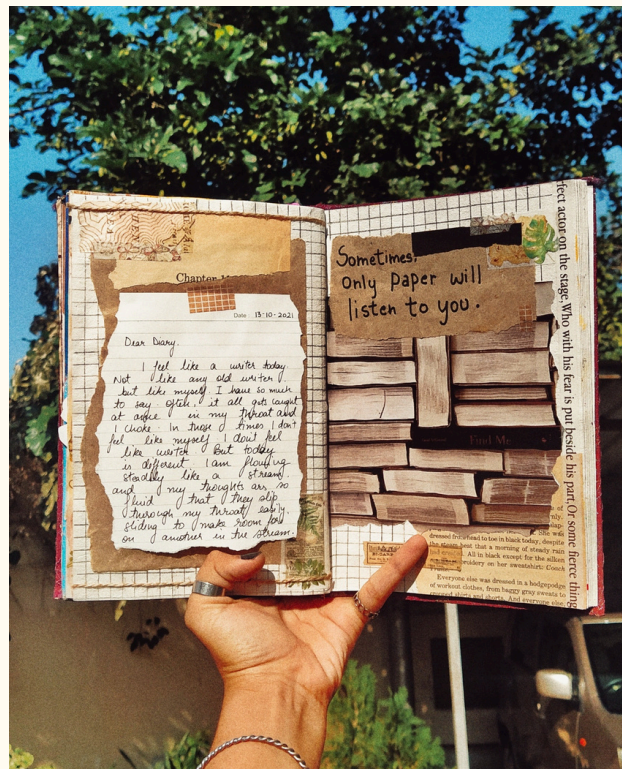 Chapter
Date: 13-10-2021
Dear Diary,
I feel like a writer today.
Not like any old writer
but like myself. I have so much
to say often, it all gets caught
at once in my throat and
I choke. In those times I don't
feel like myself. I don't feel
like writer. But today
is different. I am flowing
steadily like a stream.
and my thoughts are so
fluid that they slip
through my throat easily,
sliding to make room for
on another in the stream.
Sometimes,
only paper will
listen to you.
Find Me
fect actor on the stage, Who with his fear is put beside his part, Or some fierce thing
She was
dressed from head to toe in black today, despite
the steam heat that a morning of steady rain
All in black except for the silken
embroidery on her sweatshirt: Coach
Everyone else was dressed in a hodgepodge
of workout clothes, from baggy gray sweats to
cropped shirts and shorts. And everyone else